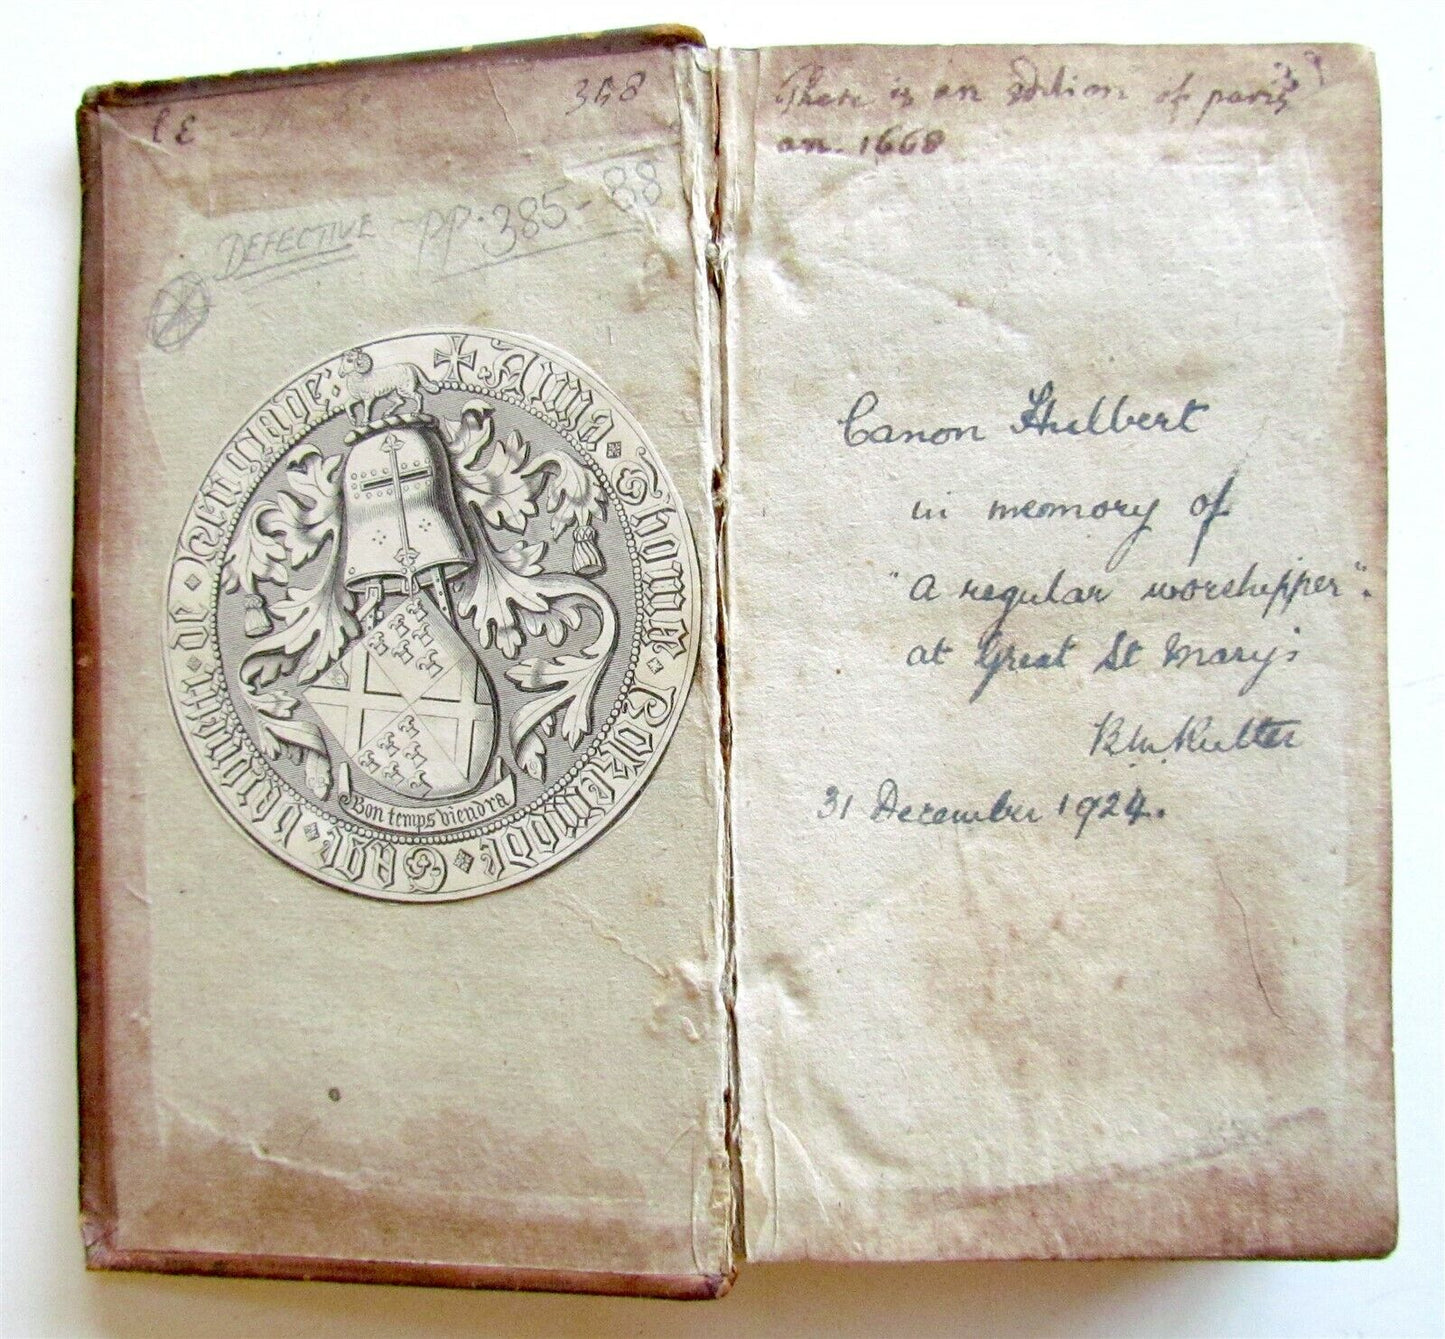 358
DEFECTIVE - pp. 385-88
✠ Arma · Thome · Rokewood · Gage ·
de ·
Bon temps viendra
There is an Edition of paris
an. 1668
Canon Hulbert
in memory of
"a regular worshipper".
at Great St Mary's
31 December 1924.